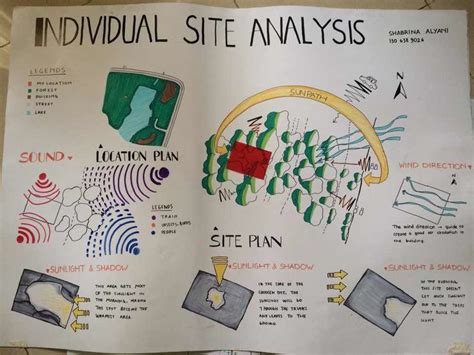 INDIVIDUAL SITE ANALYSIS
SHABRINA ALYANI
LEGENDS
MY LOCATION
FOREST
BUILDING
STREET
LAKE
N
SUNPATH
SOUND
LOCATION PLAN
WIND DIRECTION
LEGENDS
TRAIN
INSECTS, BIRDS
PEOPLE
The wind direction is guide to
create a good air circulation in
the building
SITE PLAN
SUNLIGHT & SHADOW
SUNLIGHT & SHADOW
SUNLIGHT & SHADOW
THIS AREA GETS MOST
OF THE SUNLIGHT IN THE
MORNING, MAKING
THE SPOT BECOME THE
AREA
IN THE
CHOSEN SITE, THE
SUNLIGHT WILL GO
THROUGH THE TREES
AND LEAVES TO THE
GROUND
IN THE EVENING,
THIS SITE DOESN'T
GET MUCH SUNLIGHT
DUE TO THE TREES
THAT BLOCK IT